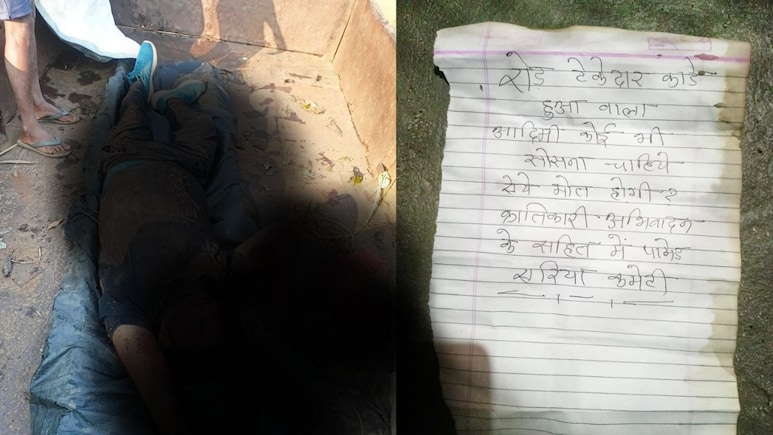 रोड़ ठेकेदार काडे
हुआ वाला
आदिमी कोई भी
सोसना चाहिये
ऐये मोत होगी ?
कातिकारी अभिवादन
के सहित में पामेड
एरिया कमेटी